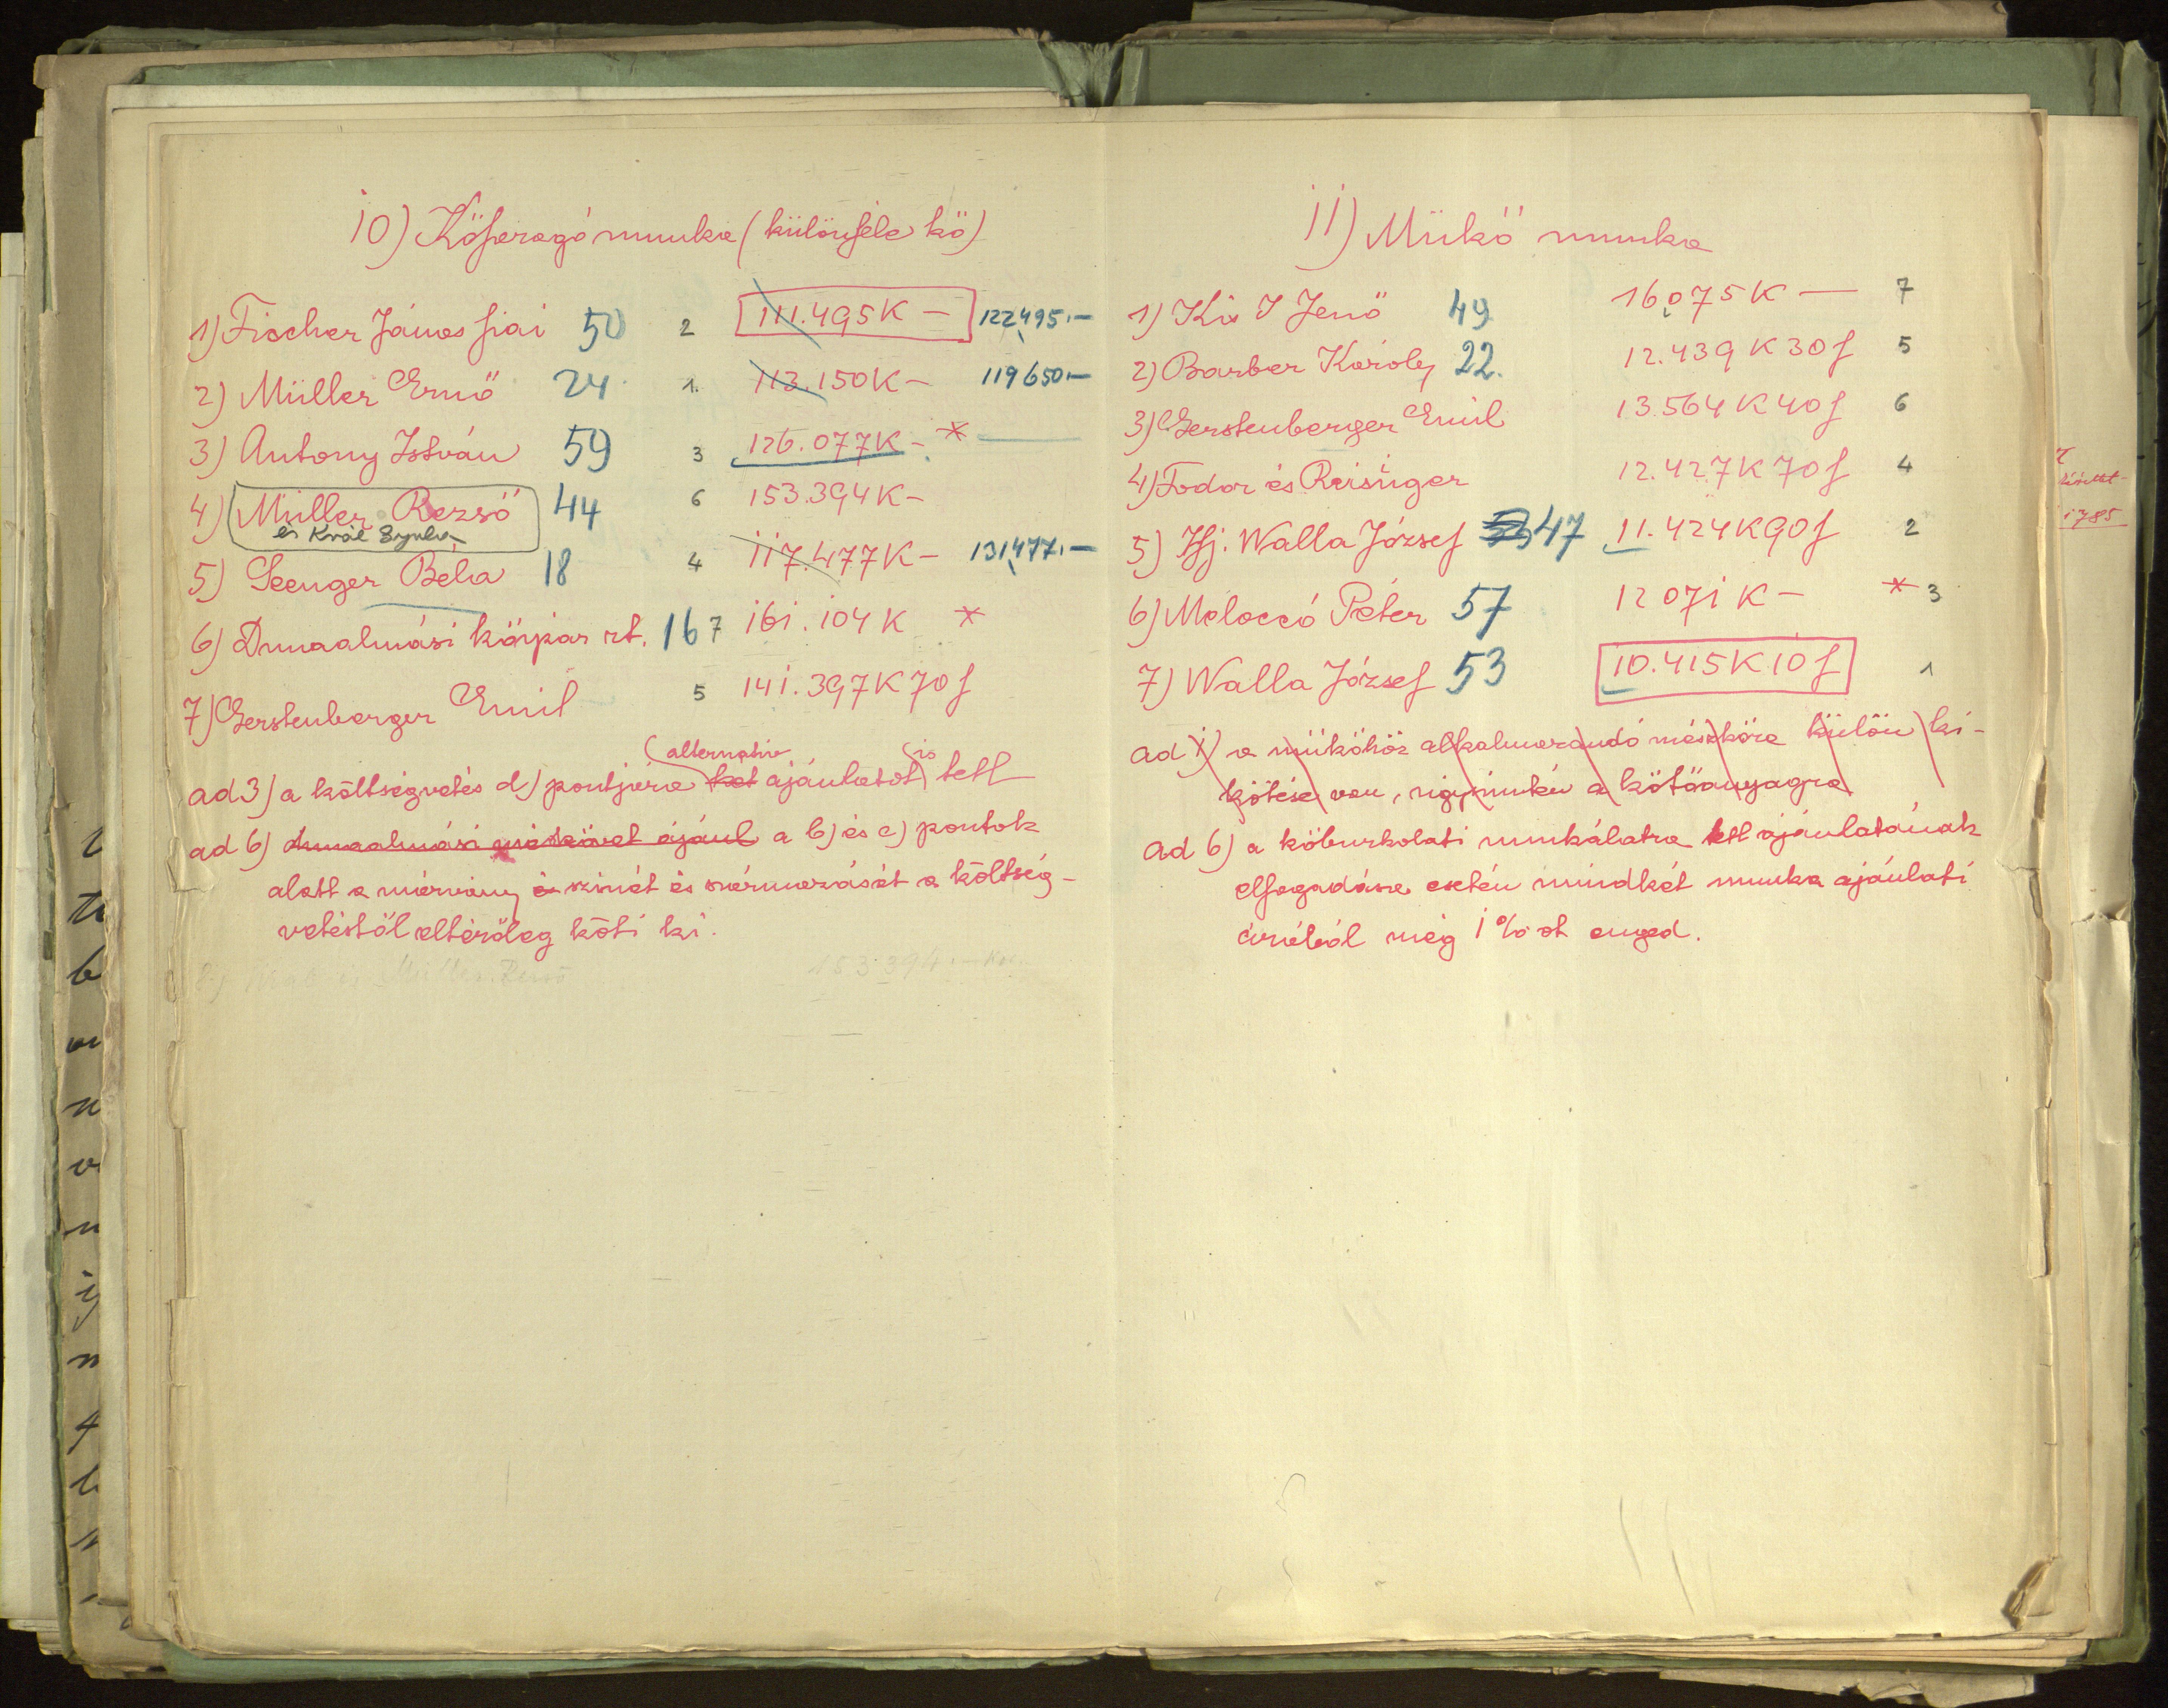 10) Kőfaragó munka (különféle kő)
1) Fischer János fiai 50 2 111.495K — 122495.—
2) Müller Ernő 24 1. 113.150K — 119650.—
3) Antony István 59 3 126.077K — *
4) Müller Rezső 44 6 153.394K —
és Král Gyula
5) Seenger Béla 18 4 117.477K — 131477.—
6) Dunaalmási kőipar rt. 16 7 161.104K *
7) Gerstenberger Emil 5 141.397K 70f
alternativ is
ad 3) a költségvetés d) pontjára két ajánlatot tett
ad 6) dunaalmási ajánl a b) és c) pontok
alatt a márvány és szinét és származását a költség-
vetéstől eltérőleg köti ki.
Müller Rezső 153394.—
11) Műkő munka
1) Kis I Jenő 49 16075K — 7
2) Barber Károly 22. 12.439K30f 5
3) Gerstenberger Emil 13.564K40f 6
4) Fodor és Reisinger 12.427K70f 4
5) Ifj. Walla József 47 11.424K90f 2
6) Meloccó Péter 57 12071K — * 3
7) Walla József 53 10.415K10f 1
ad 1) a műkőhöz alkalmazandó mészkőre külön ki-
kötése van, úgyszintén a kötőanyagra
ad 6) a kőburkolati munkálatra tett ajánlatának
elfogadása esetén mindkét munka ajánlati
árából még 1%ot enged.
1785